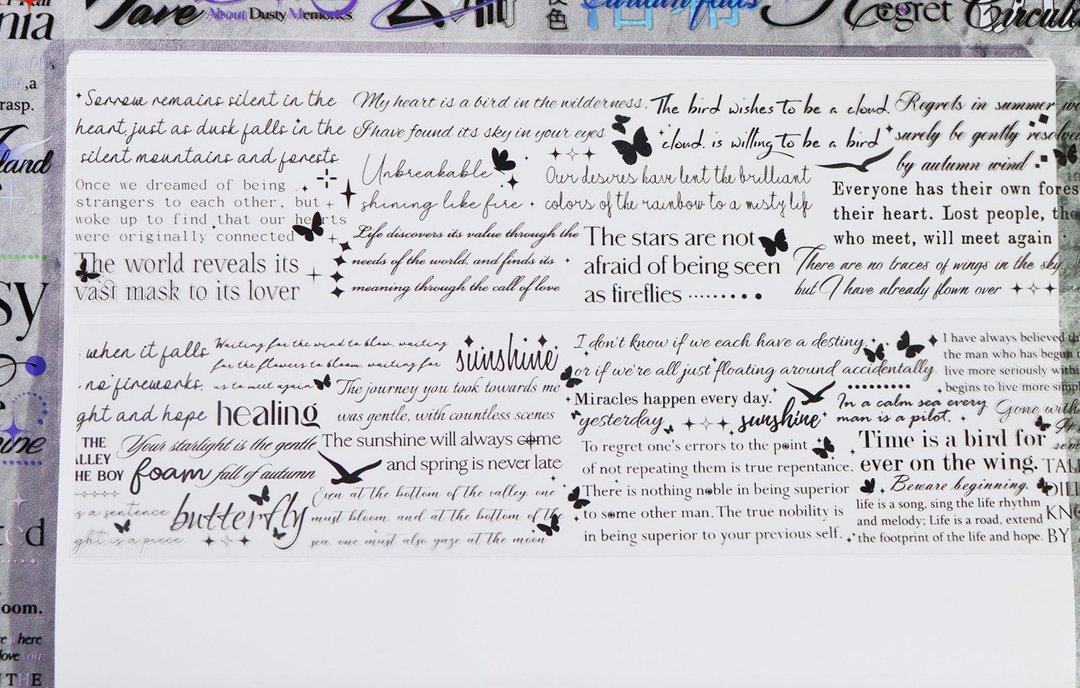 About Dusty Memories
Regret
nia
,a
rasp.
land
sy
ine
ted
oom.
THE
Sorrow remains silent in the
heart, just as dusk falls in the
silent mountains and forests
Once we dreamed of being
strangers to each other, but
woke up to find that our hearts
were originally connected
The world reveals its
vast mask to its lover
My heart is a bird in the wilderness.
I have found its sky in your eyes
Unbreakable
shining like fire
Life discovers its value through the
needs of the world, and finds its
meaning through the call of love
The bird wishes to be a cloud.
cloud. is willing to be a bird
Our desires have lent the brilliant
colors of the rainbow to a misty life
The stars are not
afraid of being seen
as fireflies
Regrets in summer
surely be gently resolved
by autumn wind
Everyone has their own fores
their heart. Lost people,
who meet, will meet again
There are no traces of wings in the sky,
but I have already flown over
when it falls
no fireworks,
ght and hope
THE
ALLEY
HE BOY
s a sentence
ght is a piece
Waiting for the wind to blow, waiting
for the flowers to bloom, waiting for
us to meet again
healing
Your starlight is the gentle
foam fall of autumn
butterfly
sunshine
The journey you took towards me
was gentle, with countless scenes
The sunshine will always come
and spring is never late
Even at the bottom of the valley, one
must bloom, and at the bottom of the
sea, one must also gaze at the moon
I don't know if we each have a destiny,
or if we're all just floating around accidentally.
Miracles happen every day.
yesterday
sunshine
To regret one's errors to the point
of not repeating them is true repentance.
There is nothing noble in being superior
to some other man. The true nobility is
in being superior to your previous self.
I have always believed th
the man who has begun t
live more seriously within
begins to live more simpl
In a calm sea every
man is a pilot.
Gone with
Time is a bird for
ever on the wing.
Beware beginning.
life is a song, sing the life rhythm
and melody; Life is a road, extend
the footprint of the life and hope.
BY